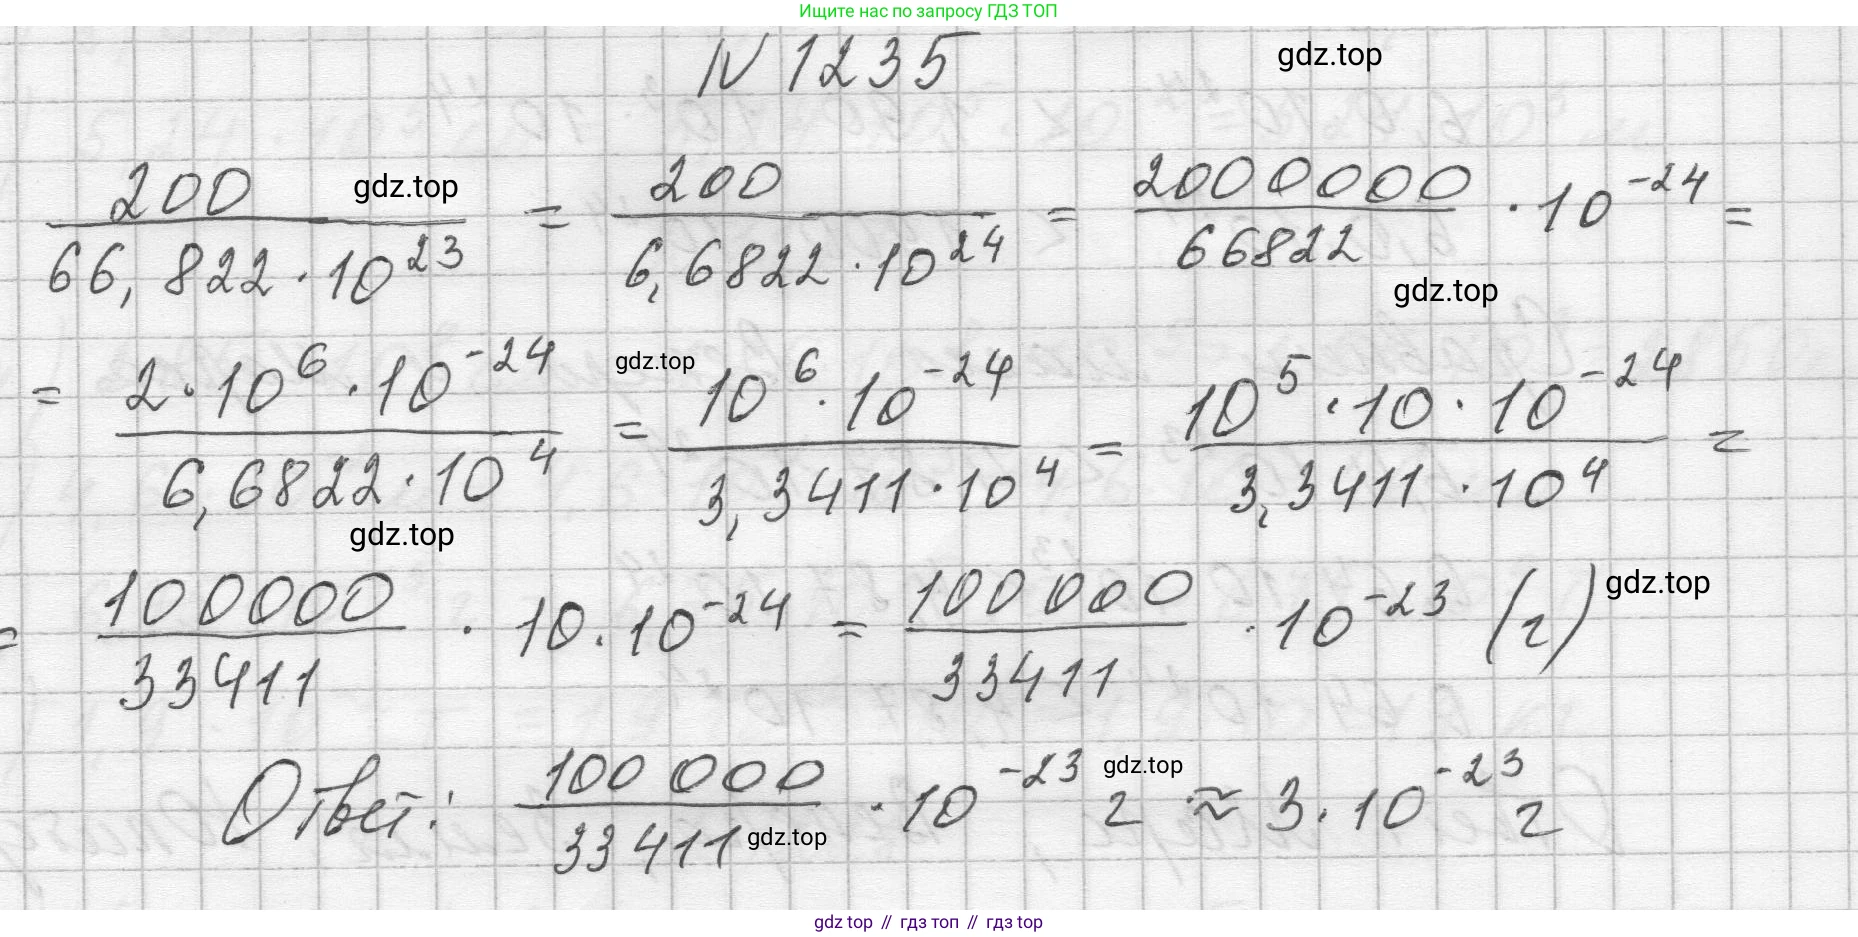 Ищите нас по запросу ГДЗ ТОП
N 1235 gdz.top
200 / 66,822 · 10^23 gdz.top = 200 / 6,6822 · 10^24 = 2000000 / 66822 · 10^-24 =
gdz.top
= 2 · 10^6 · 10^-24 / 6,6822 · 10^4 gdz.top = 10^6 · 10^-24 / 3,3411 · 10^4 = 10^5 · 10 · 10^-24 / 3,3411 · 10^4 =
gdz.top
= 100000 / 33411 · 10 · 10^-24 = 100000 / 33411 · 10^-23 (г) gdz.top
Ответ: 100 000 / 33411 · 10^-23 г gdz.top ≈ 3 · 10^-23 г
gdz.top
gdz top // гдз топ // гдз top